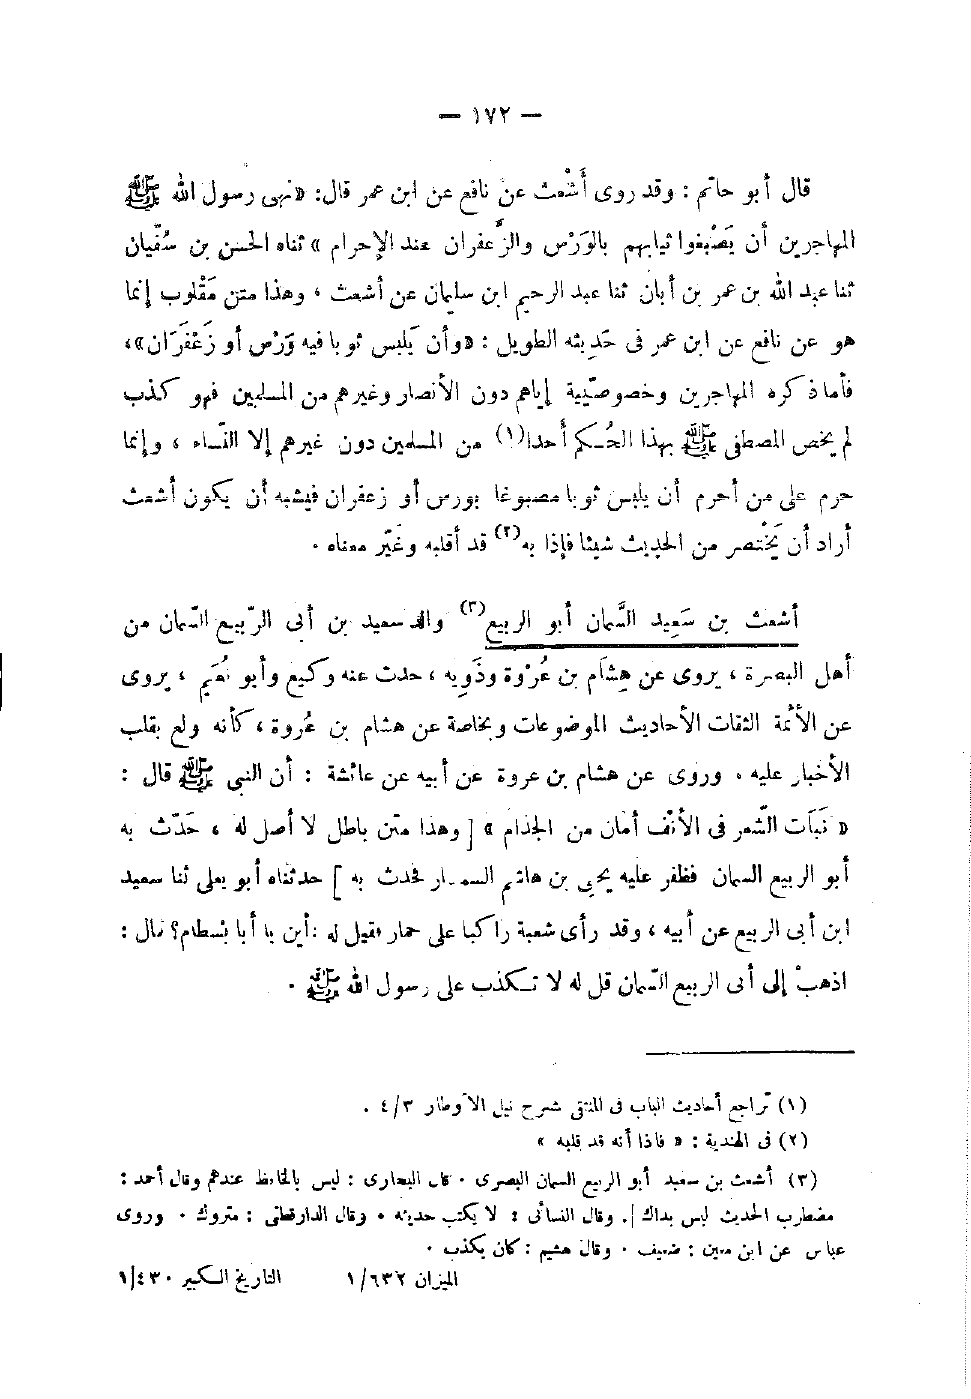 — ١٧٢ —
قال أبو حاتم : وقد روى أَشْعث عن نافع عن ابن عمر قال: «نهى رسول الله ﷺ
المهاجرين أن يَصْبغوا ثيابهم بالوَرْس والزَّعفران عند الإحرام » ثناه الحسن بن سُفْيان
ثنا عبد الله بن عمر بن أبان ثنا عبد الرحيم ابن سليمان عن أشعث ، وهذا متن مَقْلوب إنما
هو عن نافع عن ابن عمر فى حَدِيثه الطويل : «وأن يَلبس ثوبا فيه وَرْس أو زَعْفَرَان»،
فأما ذكره المهاجرين وخصوصيّية إياهم دون الأنصار وغيرهم من المسلمين فهو كذب
لم يخص المصطفى ﷺ بهذا الحُـكم أحدا(١) من المسلمين دون غيرهم إلا النّساء ، وإنما
حرم على من أحرم أن يلبس ثوبا مصبوغا بورس أو زعفران فيشبه أن يكون أشعث
أراد أن يَخْتصر من الحديث شيئا فإذا به(٢) قد أقلبه وغَيّر معناه .
أشعث بن سَعِيد السَّمان أبو الربيع(٣) والد سعيد بن أبى الرّبيع السّمان من
أهل البصرة ، يروى عن هِشَام بن عُرْوة وذَوِيه ، حدث عنه وكيع وأبو نُعَيم ، يروى
عن الأئمة الثقات الأحاديث الموضوعات وبخاصة عن هشام بن عُروة ، كأنه ولع بقلب
الأخبار عليه . وروى عن هشام بن عروة عن أبيه عن عائشة : أن النبى ﷺ قال :
« نَبَات الشّعر فى الأنْف أمان من الجذام » [ وهذا متن باطل لا أصل له ، حَدّث به
أبو الربيع السمان فظفر عليه يحيى بن هاشم السمـار فحدث به ] حدثناه أبو يعلى ثنا سعيد
ابن أبى الربيع عن أبيه ، وقد رأى شعبة راكبا على حمار فقيل له : أين يا أبا بسْطام؟ قال :
اذهبْ إلى أبى الربيع السّمان قل له لا تـكذب على رسول الله ﷺ .
(١) تراجع أحاديث الباب فى المنتقى شرح نيل الأوطار ٤/٣ .
(٢) فى الهندية : « فاذا أنه قد قلبه »
(٣) أشعث بن سعيد أبو الربيع السمان البصرى . قال البخارى : ليس بالحافظ عندهم وقال أحمد :
مضطرب الحديث ليس بذاك . وقال النسائى : لا يكتب حديثه . وقال الدارقطنى : متروك . وروى
عباس عن ابن معين : ضعيف . وقال هشيم : كان يكذب .
الميزان ١/٦٣٢ التاريخ الـكبير ١/٤٣٠